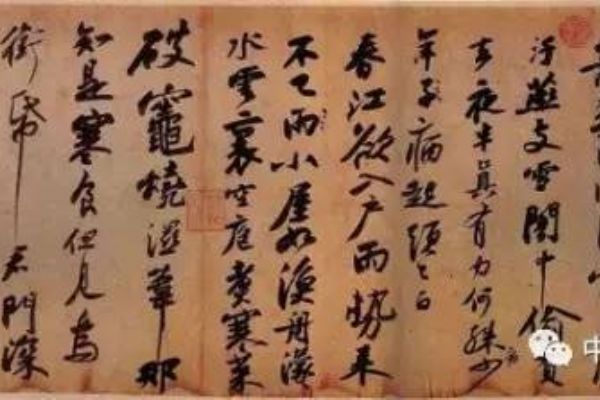 汙燕支雪闇中偷負
去夜半真有力何殊少
年子病起頭已白
春江欲入户雨勢來
不已雨小屋如漁舟濛
水雲裏空庖煮寒菜
破竈燒濕葦那
知是寒食但見烏
銜帋君門深
中